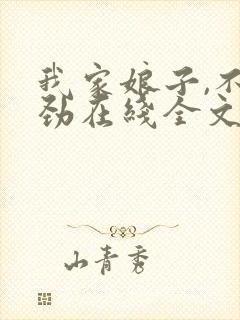 我家娘子,不
劲在线全文
山青秀